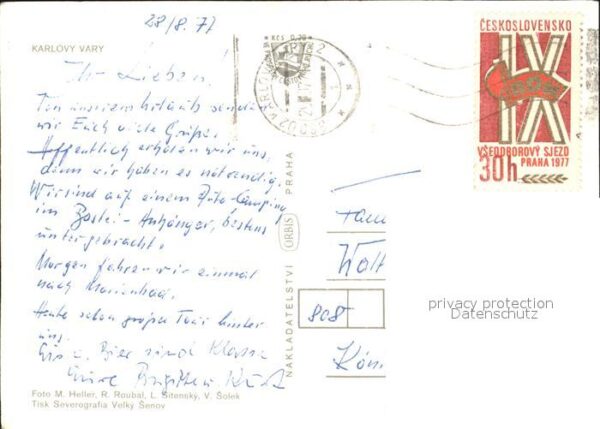 28/8.77
KARLOVY VARY
Ihr Lieben!
Von unserem Urlaub senden
wir Euch viele Grüße.
Hoffentlich erholen wir uns,
denn wir haben es notwendig.
Wir sind auf einem Auto-Camping
im Bastei-Anhänger, bestens
untergebracht.
Morgen fahren wir einmal
nach Marienbad.
Heute schon große Tour hinter
uns.
Eis u. Bier sind Klasse
Eure Brigitte u. Kurt
Foto M. Heller, R. Roubal, L. Sitenský, V. Šolek
Tisk Severografia Velký Šenov
NAKLADATELSTVÍ ORBIS PRAHA
KČS 0,30
ČESKOSLOVENSKO
IX
VŠEODBOROVÝ SJEZD
PRAHA 1977
30h
Fam
Wolf
808
privacy protection
Datenschutz